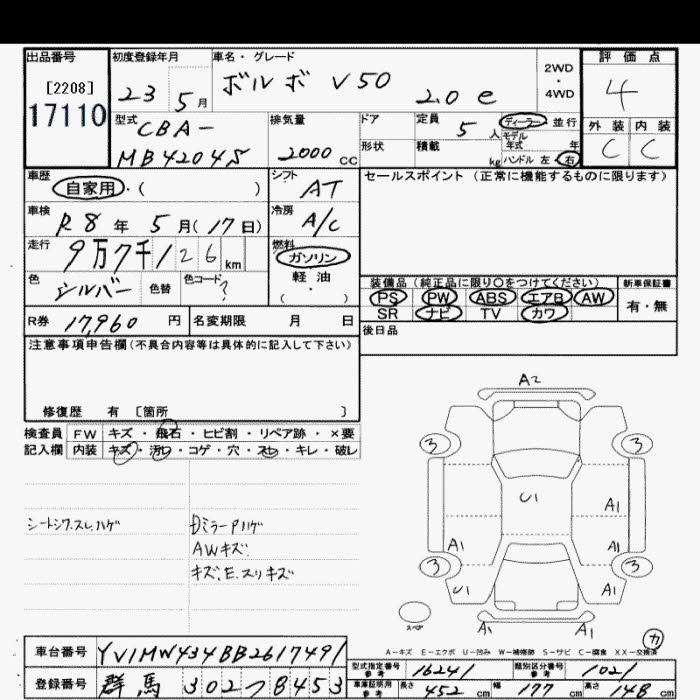 出品番号 初度登録年月 車名・グレード 評価点
[2208] 23 5月 ボルボ V50 2WD 4
17110 2.0 e 4WD
型式 排気量 ドア 定員 5人 ディーラー 並行 外装 内装
CBA- モデル年式 年 C C
MB4204S 2000cc 形状 積載 kg ハンドル 左・右
車歴 シフト セールスポイント (正常に機能するものに限ります)
自家用・( ) AT
車検 R8年 5月(17日) 冷房 A/C
走行 9万7千126km 燃料 ガソリン
軽油
・
( )
色 シルバー 色替 色コード ? 装備品 (純正品に限り○をつけてください) 新車保証書
PS PW ABS エアB AW 有・無
R券 17,960円 名変期限 月 日 SR ナビ TV カワ
注意事項申告欄(不具合内容等は具体的に記入して下さい) 後日品
修復歴 有 〔箇所 〕
検査員 FW キズ・飛石・ヒビ割・リペア跡・×要
記入欄 内装 キズ・汚レ・コゲ・穴・スレ・キレ・破レ
A2
3 3
U1 A1
シートシワ.スレ.ハゲ DミラーPハゲ
AWキズ. A1 A1
キズ.E.スリキズ 3 3
U1 A1
スペア A1 A1
カ
A-キズ E-エクボ U-凹み W-補修跡 S-サビ C-腐食 XX-交換済
車台番号 YV1MW434BB2617491
型式指定番号 参考 16241 類別区分番号 参考 1021
登録番号 群馬 302つ8453
車庫証明用 参考 長さ 452cm 幅 177cm 高さ 148cm